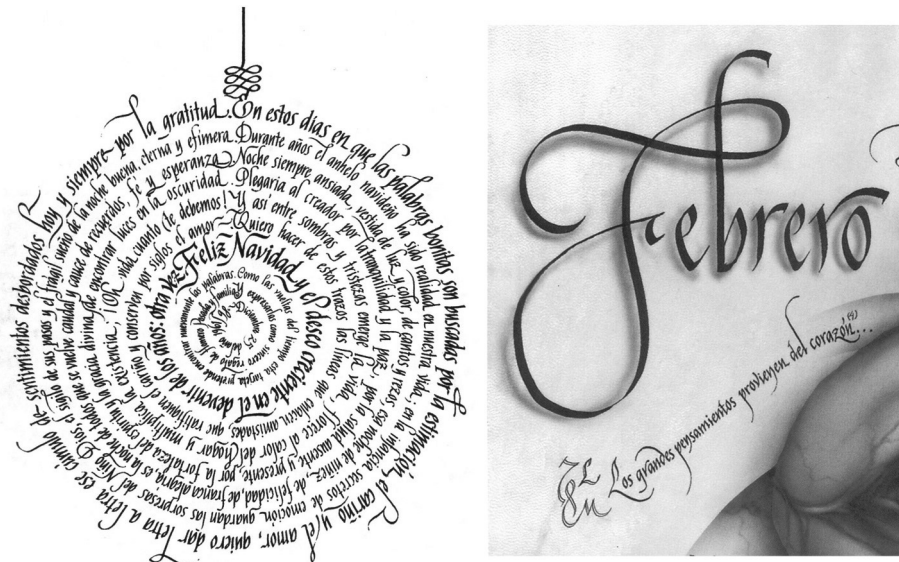 En estos días en que las palabras bonitas son buscadas por la estimación, el cariño y el amor, quiero dar letra a letra ese cúmulo de sentimientos desbordados hoy y siempre por la gratitud.
Durante años el anhelo navideño ha sido realidad en nuestra vida, en la infancia secretos de emoción, guardan las sorpresas del Niño Dios, el sigilo de sus pasos y el frágil sueño de la noche buena, eterna y efímera.
Noche siempre ansiada, vestida de luz y color, de cantos y rezos, esa noche de niñez, de felicidad, de franca alegría, es la noche de todos que se vuelve caudal y cauce de recuerdos, fe y esperanza.
Plegaria al creador por la tranquilidad y la paz, por la salud ausente y presente, por la fortaleza del espíritu y la gracia divina de encontrar luces en la oscuridad.
Y así entre sombras y tristezas emerge la vida, frente al calor del hogar y multiplica la existencia, ¡oh, vida cuánto te debemos!
Quiero hacer de estos trazos las líneas que enlacen amistades que ratifiquen el cariño y conserven por siglos el amor.
Feliz Navidad y el deseo creciente en el devenir de los años: otra vez
Como las huellas del tiempo esta tarjeta pretende encontrar nuevamente las palabras.
Y expresarlas como sincero regalo de
familia
Diciembre 25 del año
Febrero
Los grandes pensamientos provienen del corazón...